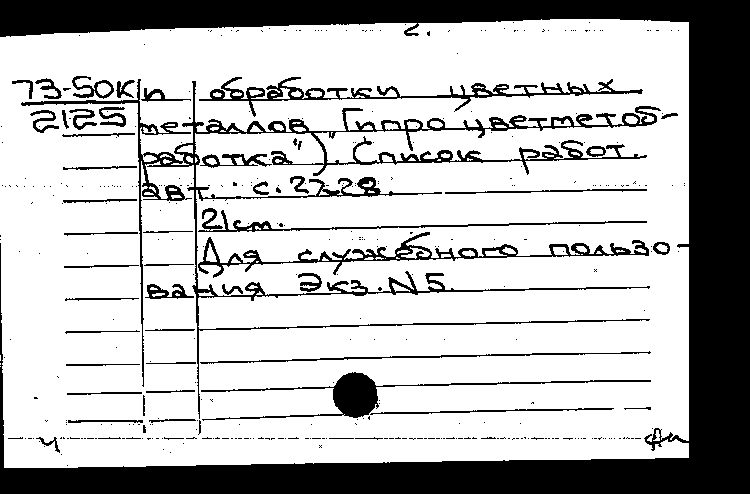 2.
73-50К п обработки цветных
2125 металлов "Гипроцветметоб-
работка"). Список работ.
авт.: с. 27-28.
21см.
Для служебного пользо-
вания. Экз. N 5.
ч